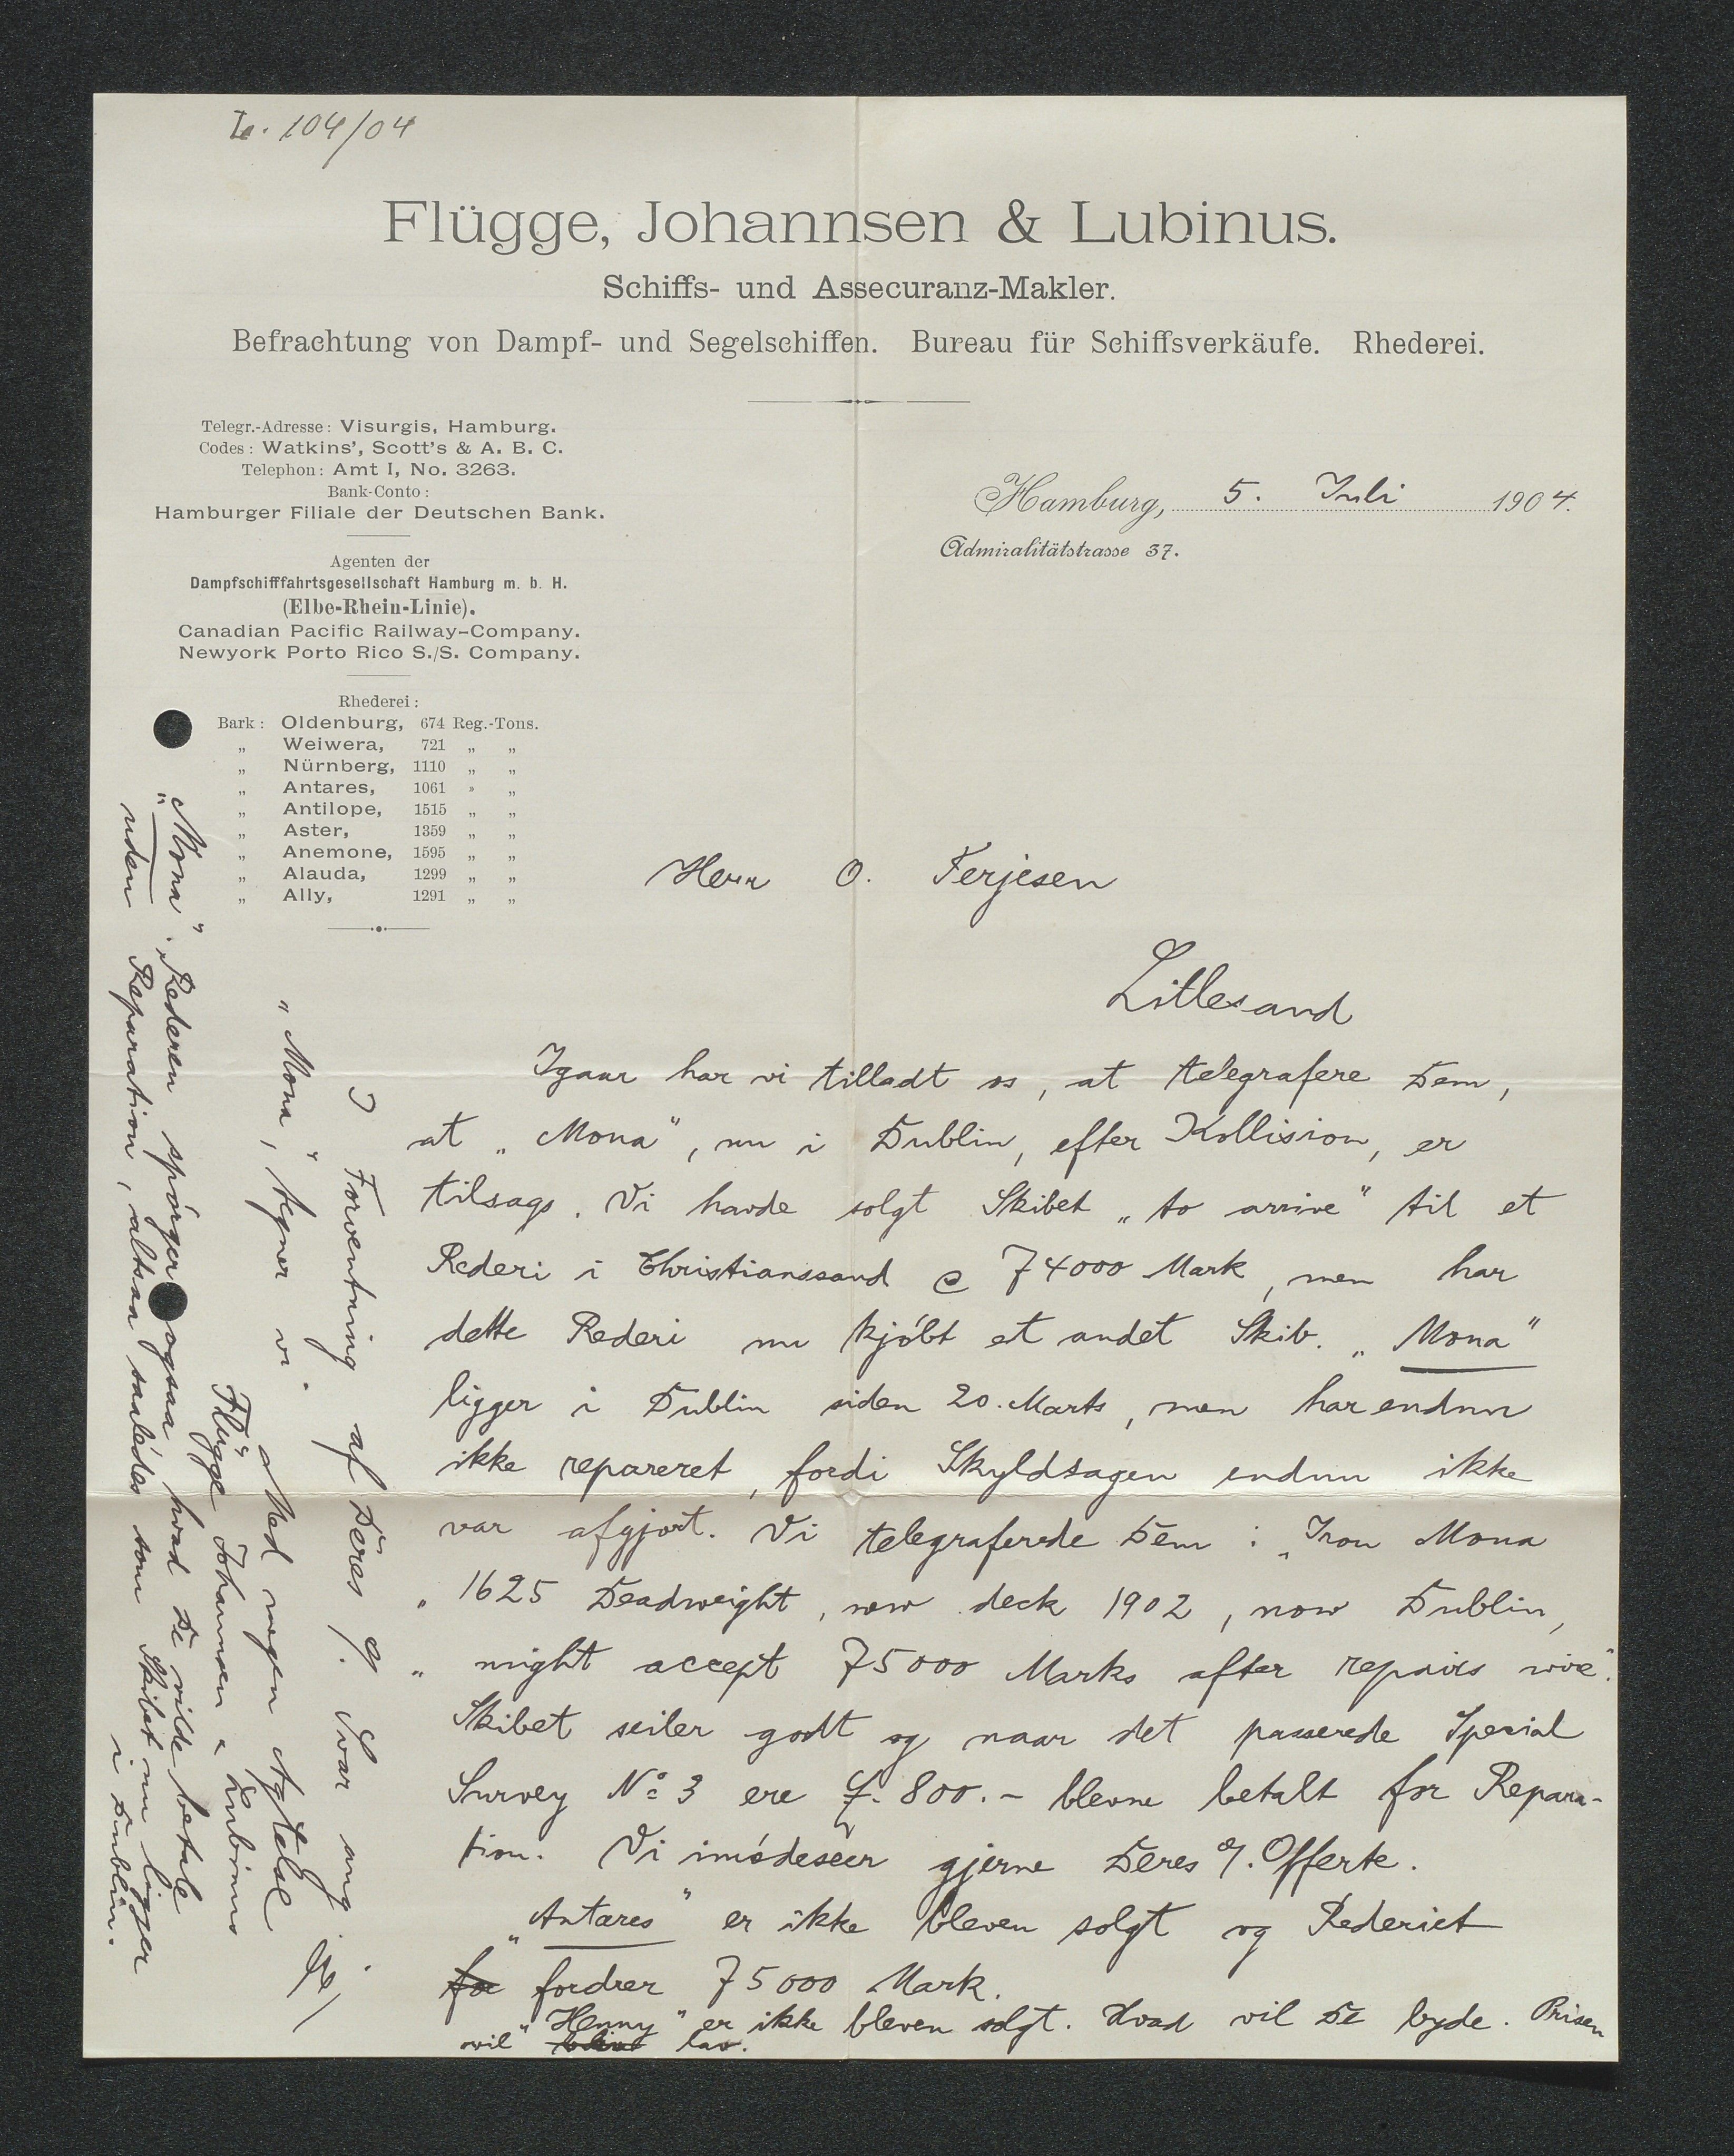 104/04
Flügge, Johannsen & Lubinus.
Schiffs- und Assecuranz-Makler.
Befrachtung von Dampf- und Segelschiffen. Bureau für Schiffsverkäufe. Rhederei.
Telegr.-Adresse: Visurgis, Hamburg.
Codes: Watkins', Scott's & A. B. C.
Telephon: Amt I, No. 3263.
Bank-Conto:
Hamburger Filiale der Deutschen Bank.
Agenten der
Dampfschifffahrtsgesellschaft Hamburg m. b. H.
(Elbe-Rhein-Linie).
Canadian Pacific Railway-Company.
Newyork Porto Rico S./S. Company.
Rhederei:
Bark: Oldenburg, 674 Reg.-Tons.
„ Weiwera, 721 „ „
„ Nürnberg, 1110 „ „
„ Antares, 1061 „ „
„ Antilope, 1515 „ „
„ Aster, 1359 „ „
„ Anemone, 1595 „ „
„ Alauda, 1299 „ „
„ Ally, 1291 „ „
Hamburg, 5. Juli 1904.
Admiralitätstrasse 37.
Herr O. Terjesen
Lillesand
Igaar har vi tilladt os, at telegrafere Dem,
at „Mona", nu i Dublin, efter Kollision, er
tilsags. Vi havde solgt Skibet „to arrive" til et
Rederi i Christianssand @ 74000 Mark, men har
dette Rederi nu kjöbt et andet Skib. „Mona"
ligger i Dublin siden 20. Marts, men har endnu
ikke repareret, fordi Skyldsagen endnu ikke
var afgjort. Vi telegraferede Dem: „Iron Mona
„ 1625 Deadweight, new deck 1902, now Dublin,
„ might accept 75000 Marks after repairs wire".
Skibet seiler godt og naar det passerede Special
Survey No 3 ere £. 800.- blevne betalt for Repara-
tion. Vi imödeseer gjerne Deres g. Offerte.
„Antares" er ikke bleven solgt og Rederiet
for fordrer 75000 Mark.
„Henny" er ikke bleven solgt. Hvad vil De byde. Prisen
vil lav.
I Forventning af Deres g. Svar ang.
„Mona", tegner vi.
Med megen Agtelse
Flügge Johannsen & Lubinus
„Mona". Rederen spörger ogsaa hvad De vilde betale
uden Reparation, altsaa saaledes som Skibet nu ligger
i Dublin.